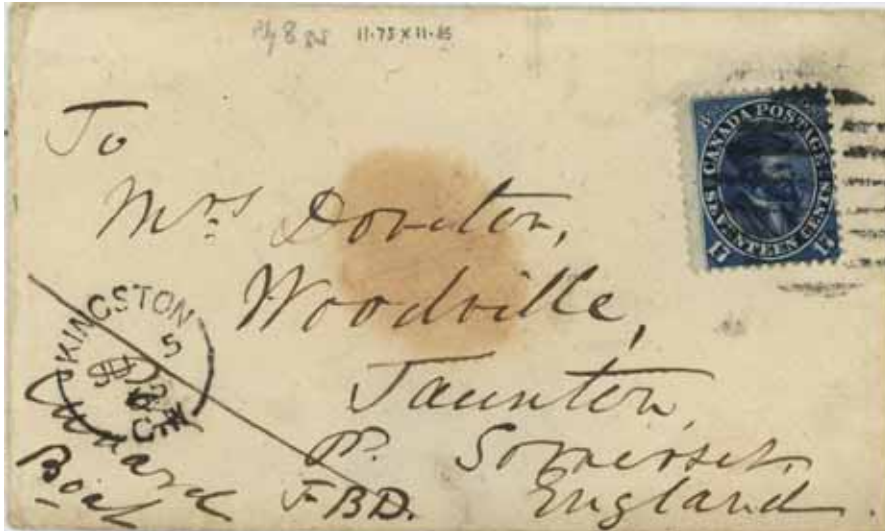 8 11.75 x 11.85
CANADA POSTAGE
SEVENTEEN CENTS
17 17
To
Mrs Doveton,
Woodville,
Taunton,
Somerset,
England.
KINGSTON
C.W
Cunard
Boat
F.B.D.